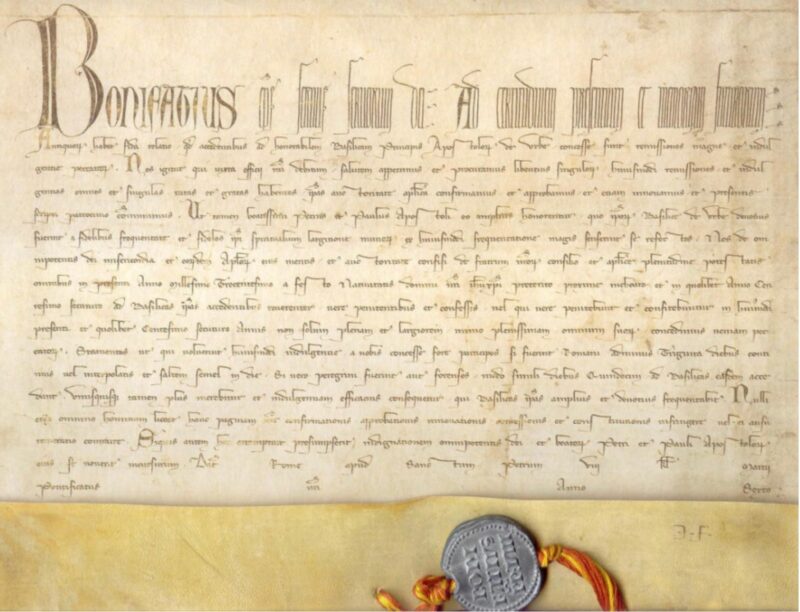 BONIFATIUS eps servus servorum dei Ad certitudinem presentium et memoriam futurorum
Antiquorum habet fida relatio qd accedentibus ad honorabilem Basilicam Principis Apostolorum de Urbe concesse sunt remissiones magne et indul
gentie peccatorum. Nos igitur qui iuxta officii nri debitum salutem appetimus et procuramus libentius singulorum huiusmodi remissiones et indul
gentias omnes et singulas ratas et gratas habentes ipas auctoritate aplica confirmamus et approbamus et etiam innovamus et presentis
scripti patrocinio communimus. Ut tamen beatissimi Petrus et Paulus Apostoli eo amplius honorentur quo ipor Basilice de Urbe devotius
fuerint a fidelibus frequentate et fideles ipi spiritualium largitione munerum ex huiusmodi frequentatione magis senserint se refectos. Nos de om
nipotentis dei misericordia et eordem Aplor eius meritis et auctoritate confisi de fratrum nror consilio et aplice plenitudine potestatis
omnibus in presenti Anno Millesimo Trecentesimo a festo Nativitatis domini nri ihu xpi preterito proxime inchoato et in quolibet Anno Cen
tesimo secuturo ad Basilicas ipas accedentibus reverenter vere penitentibus et confessis vel qui vere penitebunt et confitebuntur in huiusmodi
presenti et quolibet Centesimo secuturo Annis non solum plenam et largiorem immo plenissimam omnium suor concedimus veniam pec
catorum. Statuentes ut qui voluerint huiusmodi indulgentie a nobis concesse fore participes si fuerint Romani ad minus Triginta diebus conti
nuis vel interpolatis et saltem semel in die. Si vero peregrini fuerint aut forenses modo simili diebus Quindecim ad Basilicas easdem acce
dant. Unusquisq tamen plus merebitur et indulgentiam efficacius consequetur qui Basilicas ipas amplius et devotius frequentabit. Nulli
ergo omnino hominum liceat hanc paginam nre confirmationis approbationis innovationis concessionis et constitutionis infringere vel ei ausu
temerario contraire. Siquis autem hoc attemptare presumpserit indignationem omnipotentis dei et beator Petri et Pauli Apostolor
eius se noverit incursurum. Dat Rome apud Sanctum Petrum viii kl Martii
Pontificatus nri Anno Sexto.